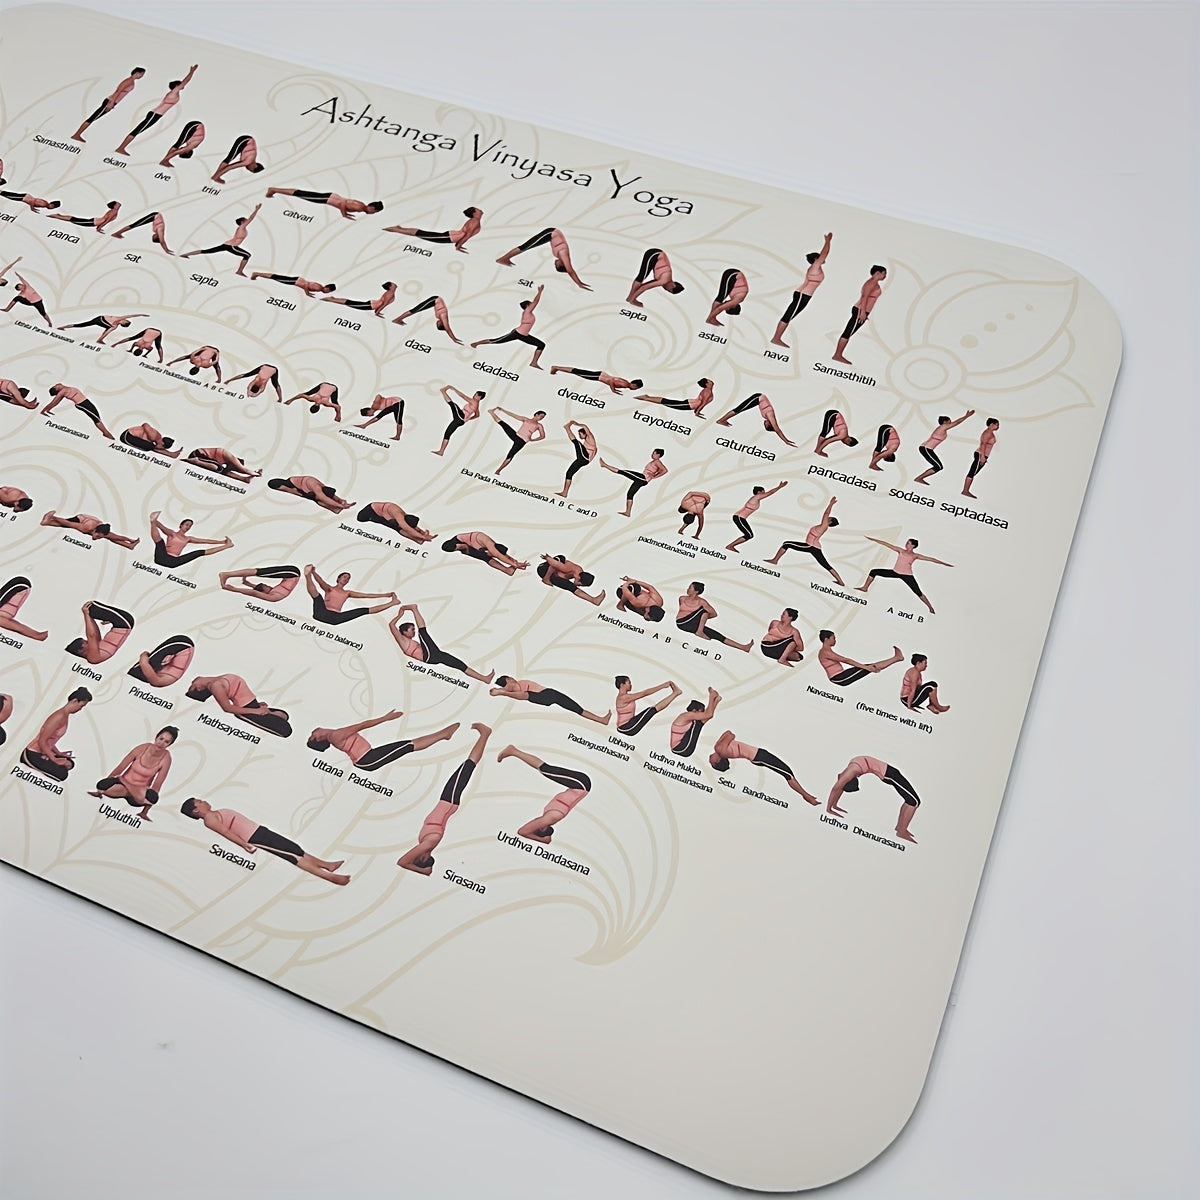 Ashtanga Vinyasa Yoga
Samasthitih ekam dve trini catvari panca sat sapta astau nava Samasthitih
panca sat sapta astau nava dasa ekadasa dvadasa trayodasa caturdasa pancadasa sodasa saptadasa
A and B
Prasarita Padottanasana A B C and D
Parsvottanasana
Eka Pada Padangusthasana A B C and D
Ardha Baddha
padmottanasana
Utkatasana
Virabhadrasana A and B
Purvattanasana
Ardha Baddha Padma
Triang
Janu Sirasana A B and C
Marichyasana A B C and D
Navasana (five times with lift)
Konasana
Upavistha Konasana
Supta Konasana (roll up to balance)
Supta Parsvasahita
Ubhaya
Padangusthasana
Urdhva Mukha
Paschimattanasana
Setu Bandhasana
Urdhva Dhanurasana
Urdhva
Pindasana
Mathsayasana
Uttana Padasana
Sirasana
Urdhva Dandasana
Padmasana
Utpluthih
Savasana